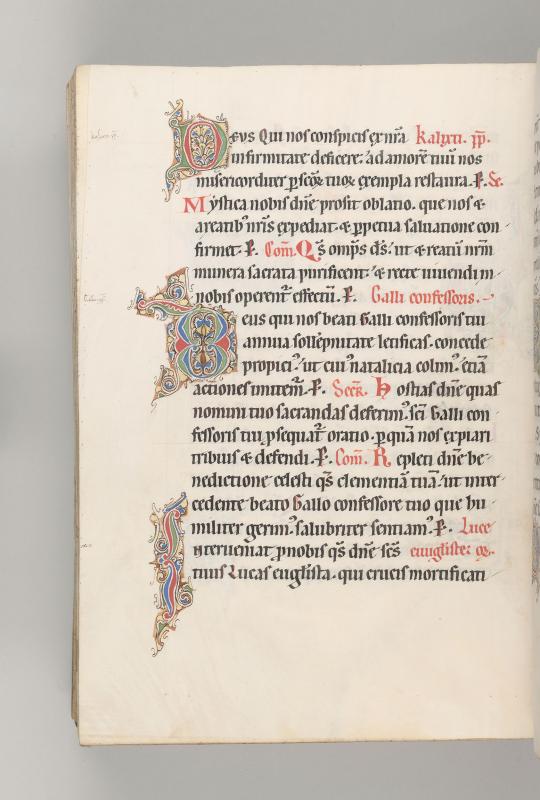 Deus Qui nos conspicis ex nra kalixti. pp.
infirmitate deficere: ad amorē tuū nos
misericorditer p scōꝝ tuoꝝ exempla restaura. P. S.
Mystica nobis dn̄e prosit oblatio. que nos &
a reatib' nr̄is expediat & ppetua saluatione con
firmet. P. Com̄. Qs̄ omp̄s ds̄. ut & reatū nr̄m
munera sacrata purificent. & recte uiuendi in
nobis operent̄ effectū. P. Galli confessoris.
Deus qui nos beati Galli confessoris tui
annua sollēpnitate letificas. concede
propici' ut cui' natalicia colim'. etiā
actiones imitem̄. P. Secr̄. Hostias dn̄e quas
nomini tuo sacrandas deferim'. sc̄i Galli con
fessoris tui psequat̄ oratio. p quā nos expiari
tribuis & defendi. P. Com̄. Repleti dn̄e be
nedictione celesti qs̄ clementiā tuā. ut inter
cedente beato Gallo confessore tuo que hu
militer gerim'. salubriter sentiam'. P. Luce
Interueniat p nobis qs̄ dn̄e sc̄s euugliste.
tuus Lucas euuglista. qui crucis mortificati